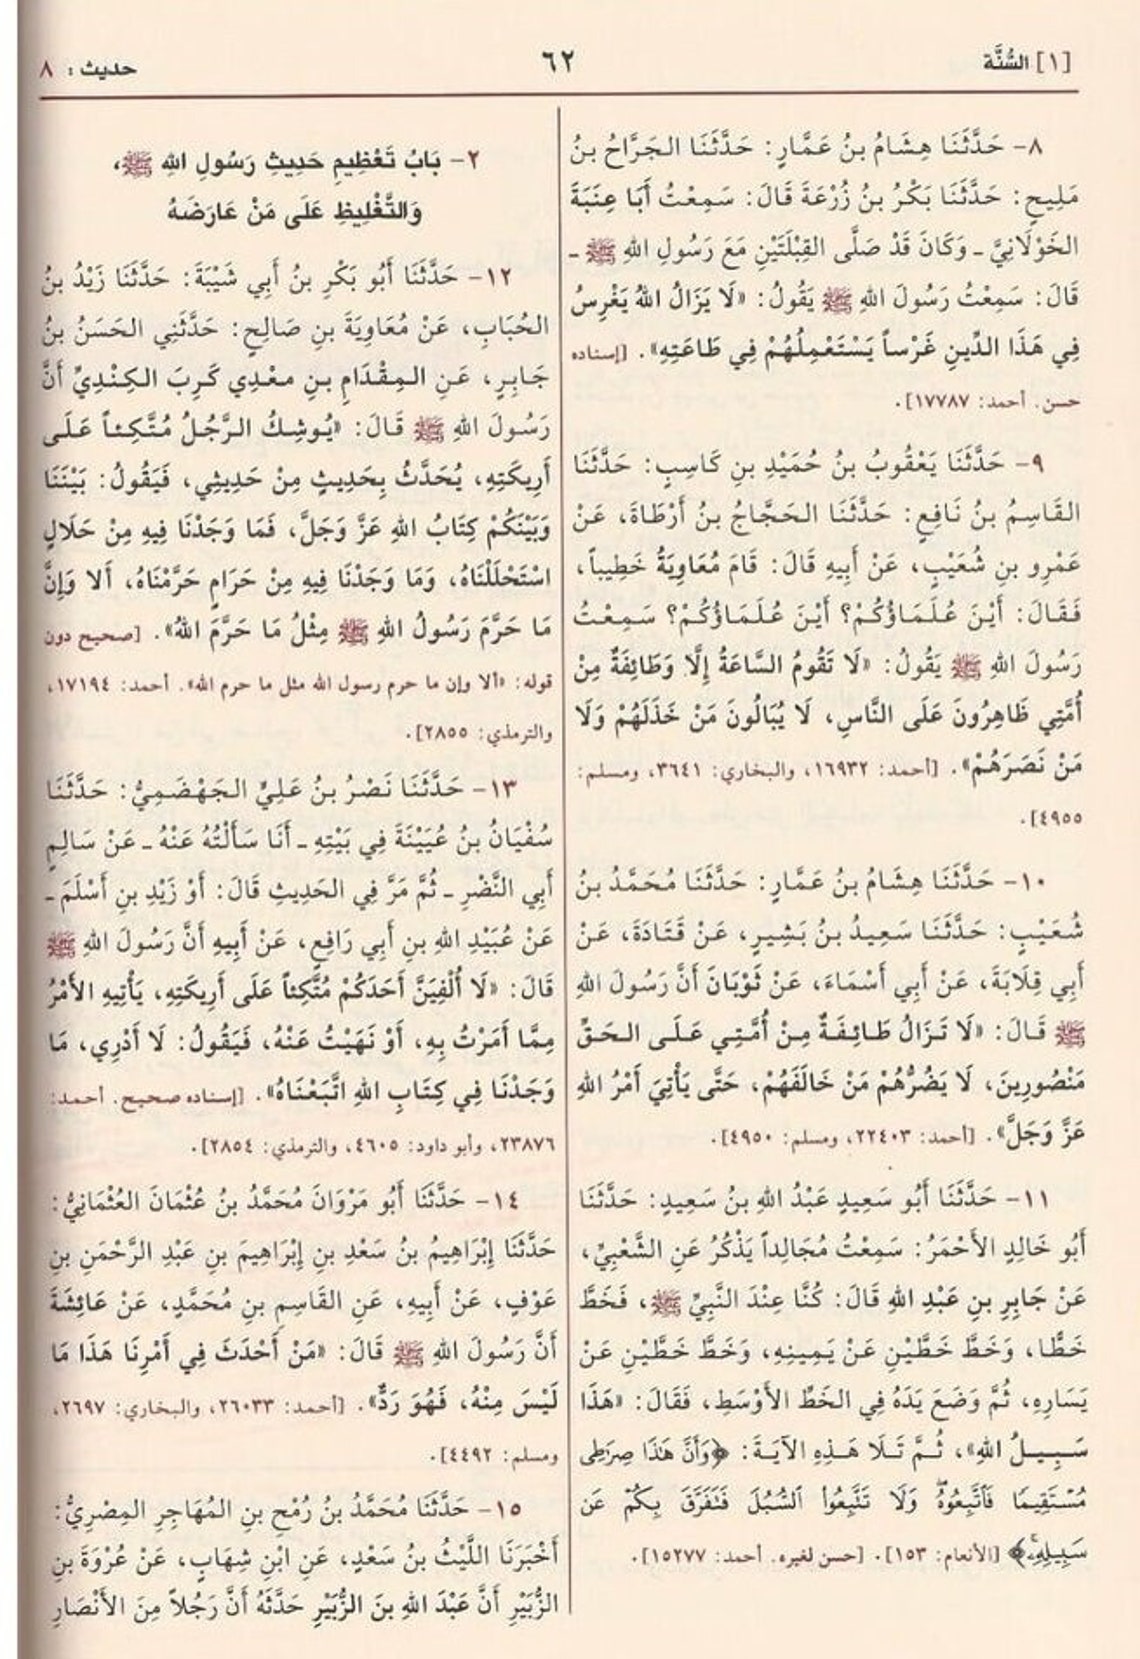 [١] السُّنَّة
٦٢
حديث : ٨
٨- حَدَّثَنَا هِشَامُ بنُ عَمَّارٍ: حَدَّثَنَا الجَرَّاحُ بنُ
مَلِيحٍ: حَدَّثَنَا بَكْرُ بنُ زُرْعَةَ قَالَ: سَمِعْتُ أَبَا عِنَبَةَ
الخَوْلَانِيَّ ـ وَكَانَ قَدْ صَلَّى القِبْلَتَيْنِ مَعَ رَسُولِ اللهِ ﷺ ـ
قَالَ: سَمِعْتُ رَسُولَ اللهِ ﷺ يَقُولُ: «لَا يَزَالُ اللهُ يَغْرِسُ
فِي هَذَا الدِّينِ غَرْساً يَسْتَعْمِلُهُمْ فِي طَاعَتِهِ». [إسناده
حسن. أحمد: ١٧٧٨٧].
٩- حَدَّثَنَا يَعْقُوبُ بنُ حُمَيْدِ بنِ كَاسِبٍ: حَدَّثَنَا
القَاسِمُ بنُ نَافِعٍ: حَدَّثَنَا الحَجَّاجُ بنُ أَرْطَاةَ، عَنْ
عَمْرِو بنِ شُعَيْبٍ، عَنْ أَبِيهِ قَالَ: قَامَ مُعَاوِيَةُ خَطِيباً،
فَقَالَ: أَيْنَ عُلَمَاؤُكُمْ؟ أَيْنَ عُلَمَاؤُكُمْ؟ سَمِعْتُ
رَسُولَ اللهِ ﷺ يَقُولُ: «لَا تَقُومُ السَّاعَةُ إِلَّا وَطَائِفَةٌ مِنْ
أُمَّتِي ظَاهِرُونَ عَلَى النَّاسِ، لَا يُبَالُونَ مَنْ خَذَلَهُمْ وَلَا
مَنْ نَصَرَهُمْ». [أحمد: ١٦٩٣٢، والبخاري: ٣٦٤١، ومسلم:
٤٩٥٥].
١٠- حَدَّثَنَا هِشَامُ بنُ عَمَّارٍ: حَدَّثَنَا مُحَمَّدُ بنُ
شُعَيْبٍ: حَدَّثَنَا سَعِيدُ بنُ بَشِيرٍ، عَنْ قَتَادَةَ، عَنْ
أَبِي قِلَابَةَ، عَنْ أَبِي أَسْمَاءَ، عَنْ ثَوْبَانَ أَنَّ رَسُولَ اللهِ
ﷺ قَالَ: «لَا تَزَالُ طَائِفَةٌ مِنْ أُمَّتِي عَلَى الحَقِّ
مَنْصُورِينَ، لَا يَضُرُّهُمْ مَنْ خَالَفَهُمْ، حَتَّى يَأْتِيَ أَمْرُ اللهِ
عَزَّ وَجَلَّ». [أحمد: ٢٢٤٠٣، ومسلم: ٤٩٥٠].
١١- حَدَّثَنَا أَبُو سَعِيدٍ عَبْدُ اللهِ بنُ سَعِيدٍ: حَدَّثَنَا
أَبُو خَالِدٍ الأَحْمَرُ: سَمِعْتُ مُجَالِداً يَذْكُرُ عَنِ الشَّعْبِيِّ،
عَنْ جَابِرِ بنِ عَبْدِ اللهِ قَالَ: كُنَّا عِنْدَ النَّبِيِّ ﷺ، فَخَطَّ
خَطًّا، وَخَطَّ خَطَّيْنِ عَنْ يَمِينِهِ، وَخَطَّ خَطَّيْنِ عَنْ
يَسَارِهِ، ثُمَّ وَضَعَ يَدَهُ فِي الخَطِّ الأَوْسَطِ، فَقَالَ: «هَذَا
سَبِيلُ اللهِ»، ثُمَّ تَلَا هَذِهِ الآيَةَ: ﴿وَأَنَّ هَٰذَا صِرَٰطِى
مُسْتَقِيمًا فَٱتَّبِعُوهُ ۖ وَلَا تَتَّبِعُوا۟ ٱلسُّبُلَ فَتَفَرَّقَ بِكُمْ عَن
سَبِيلِهِۦ﴾ [الأنعام: ١٥٣]. [حسن لغيره. أحمد: ١٥٢٧٧].
٢- بَابُ تَعْظِيمِ حَدِيثِ رَسُولِ اللهِ ﷺ،
وَالتَّغْلِيظِ عَلَى مَنْ عَارَضَهُ
١٢- حَدَّثَنَا أَبُو بَكْرِ بنُ أَبِي شَيْبَةَ: حَدَّثَنَا زَيْدُ بنُ
الحُبَابِ، عَنْ مُعَاوِيَةَ بنِ صَالِحٍ: حَدَّثَنِي الحَسَنُ بنُ
جَابِرٍ، عَنِ المِقْدَامِ بنِ معْدِي كَرِبَ الكِنْدِيِّ أَنَّ
رَسُولَ اللهِ ﷺ قَالَ: «يُوشِكُ الرَّجُلُ مُتَّكِئاً عَلَى
أَرِيكَتِهِ، يُحَدَّثُ بِحَدِيثٍ مِنْ حَدِيثِي، فَيَقُولُ: بَيْنَنَا
وَبَيْنَكُمْ كِتَابُ اللهِ عَزَّ وَجَلَّ، فَمَا وَجَدْنَا فِيهِ مِنْ حَلَالٍ
اسْتَحْلَلْنَاهُ، وَمَا وَجَدْنَا فِيهِ مِنْ حَرَامٍ حَرَّمْنَاهُ، أَلا وَإِنَّ
مَا حَرَّمَ رَسُولُ اللهِ ﷺ مِثْلُ مَا حَرَّمَ اللهُ». [صحيح دون
قوله: «ألا وإن ما حرم رسول الله مثل ما حرم الله». أحمد: ١٧١٩٤،
والترمذي: ٢٨٥٥].
١٣- حَدَّثَنَا نَصْرُ بنُ عَلِيٍّ الجَهْضَمِيُّ: حَدَّثَنَا
سُفْيَانُ بنُ عُيَيْنَةَ فِي بَيْتِهِ ـ أَنَا سَأَلْتُهُ عَنْهُ ـ عَنْ سَالِمٍ
أَبِي النَّضْرِ ـ ثُمَّ مَرَّ فِي الحَدِيثِ قَالَ: أَوْ زَيْدِ بنِ أَسْلَمَ ـ
عَنْ عُبَيْدِ اللهِ بنِ أَبِي رَافِعٍ، عَنْ أَبِيهِ أَنَّ رَسُولَ اللهِ ﷺ
قَالَ: «لَا أُلْفِيَنَّ أَحَدَكُمْ مُتَّكِئاً عَلَى أَرِيكَتِهِ، يَأْتِيهِ الأَمْرُ
مِمَّا أَمَرْتُ بِهِ، أَوْ نَهَيْتُ عَنْهُ، فَيَقُولُ: لَا أَدْرِي، مَا
وَجَدْنَا فِي كِتَابِ اللهِ اتَّبَعْنَاهُ». [إسناده صحيح. أحمد:
٢٣٨٧٦، وأبو داود: ٤٦٠٥، والترمذي: ٢٨٥٤].
١٤- حَدَّثَنَا أَبُو مَرْوَانَ مُحَمَّدُ بنُ عُثْمَانَ العُثْمَانِيُّ:
حَدَّثَنَا إِبْرَاهِيمُ بنُ سَعْدِ بنِ إِبْرَاهِيمَ بنِ عَبْدِ الرَّحْمَنِ بنِ
عَوْفٍ، عَنْ أَبِيهِ، عَنِ القَاسِمِ بنِ مُحَمَّدٍ، عَنْ عَائِشَةَ
أَنَّ رَسُولَ اللهِ ﷺ قَالَ: «مَنْ أَحْدَثَ فِي أَمْرِنَا هَذَا مَا
لَيْسَ مِنْهُ، فَهُوَ رَدٌّ». [أحمد: ٢٦٠٣٣، والبخاري: ٢٦٩٧،
ومسلم: ٤٤٩٢].
١٥- حَدَّثَنَا مُحَمَّدُ بنُ رُمْحِ بنِ المُهَاجِرِ المِصْرِيُّ:
أَخْبَرَنَا اللَّيْثُ بنُ سَعْدٍ، عَنِ ابْنِ شِهَابٍ، عَنْ عُرْوَةَ بنِ
الزُّبَيْرِ أَنَّ عَبْدَ اللهِ بنَ الزُّبَيْرِ حَدَّثَهُ أَنَّ رَجُلاً مِنَ الأَنْصَارِ